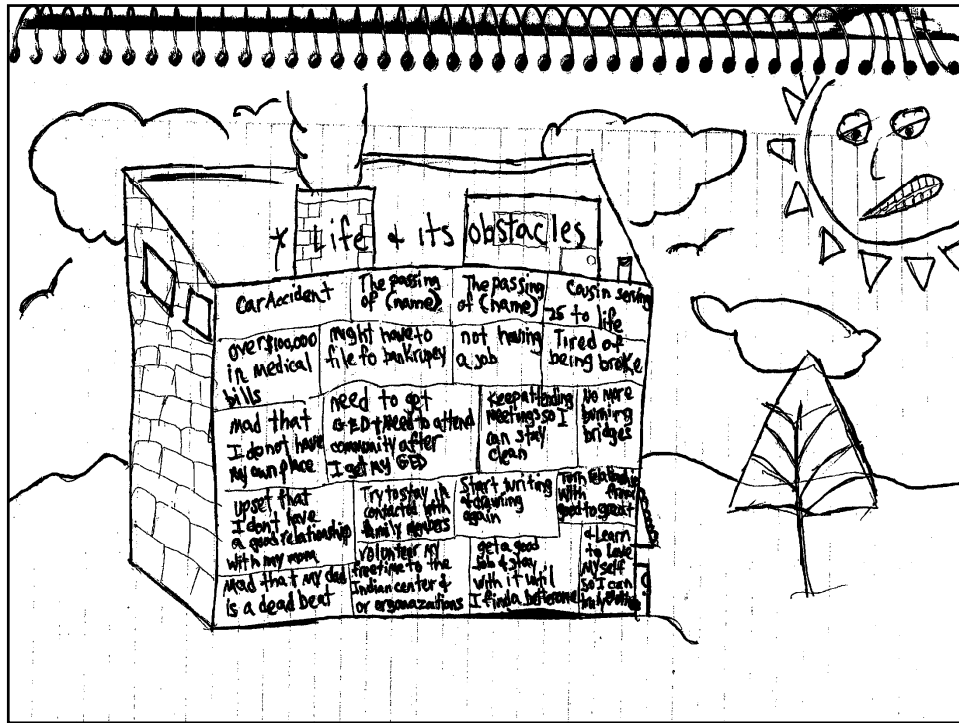 * Life & its obstacles
Car Accident
The passing
of (name)
The passing
of (name)
Cousin serving
25 to life
over $100,000
in medical
bills
might have to
file fo bankrupcy
not having
a job
Tired of
being broke
mad that
I do not have
my own place
need to get
GED + Need to attend
community after
I get my GED
Keep attending
meetings so I
can stay
clean
No more
burning
bridges
upset that
I don't have
a good relationship
with my mom
Try to stay in
contacted with
family members
Start writing
& drawing
again
Turn relationship
with
good to great
Mad that my dad
is a dead beat
volunteer my
freetime to the
Indian center &
or organazations
get a good
Job & stay
with it until
I find a better one
& Learn
to Love
Myself
so I can